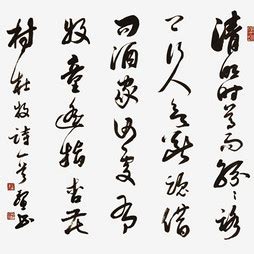 清明时节雨纷纷路
上行人欲断魂借
问酒家何处有
牧童遥指杏花
村 杜牧詩一首 书